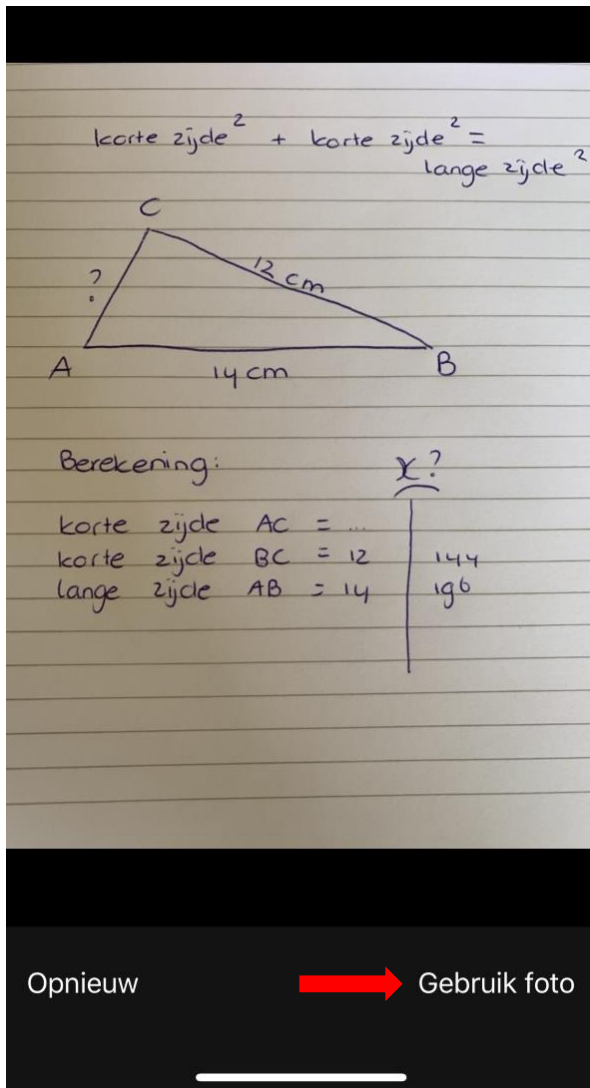 korte zijde² + korte zijde² =
lange zijde²
C
?
12 cm
A
14 cm
B
Berekening:
x?
korte zijde AC = ...
korte zijde BC = 12 144
lange zijde AB = 14 196
Opnieuw
Gebruik foto